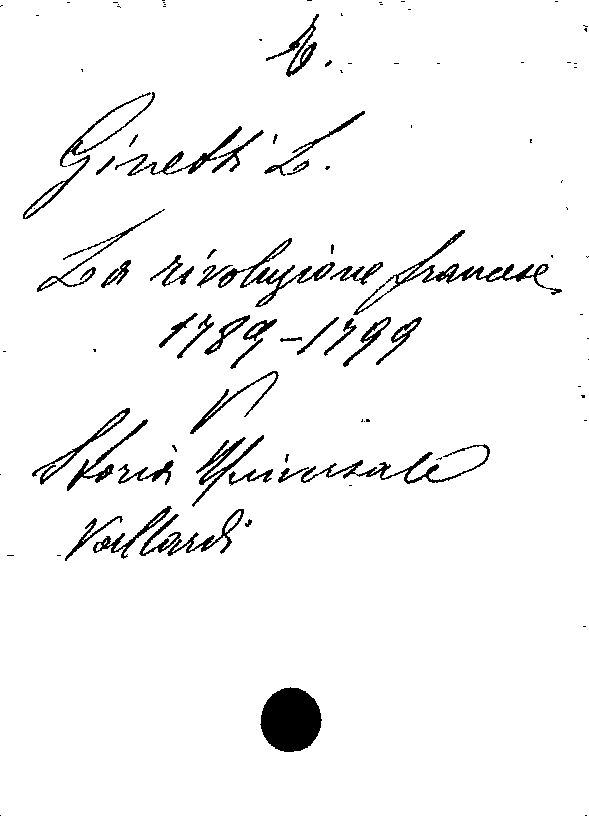 E.
Ginetti L.
La rivoluzione francese
1789-1799
V
Storia Universale
Vallardi